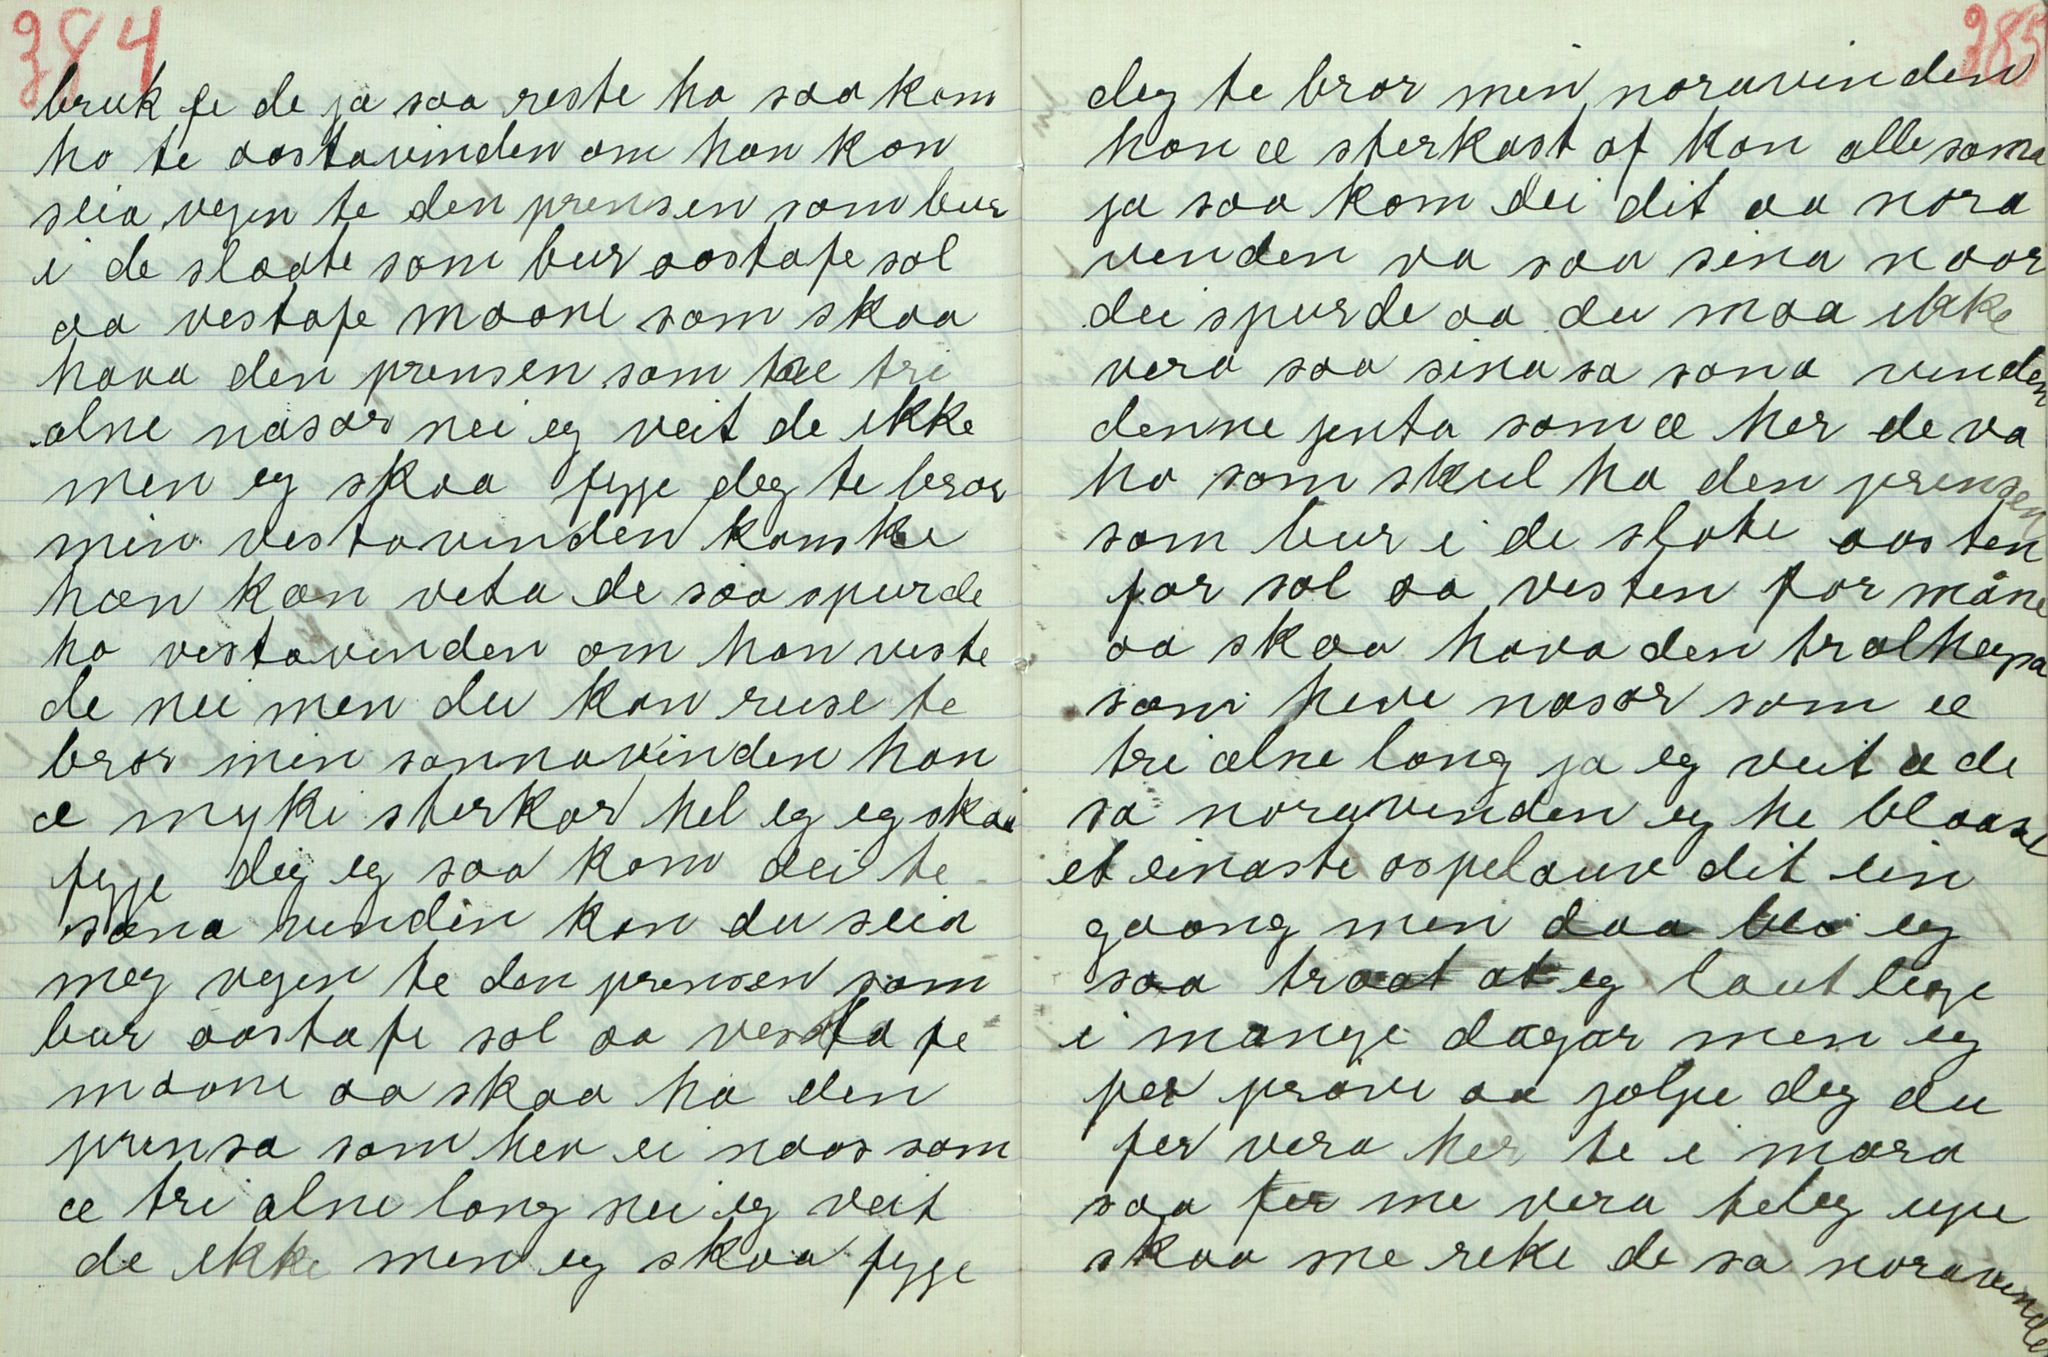 384
bruk fe de ja saa reste ho saa kom
ho te aastavinden om han kan
seia vegen te den prensen som bur
i de slaate som bur aastafe sol
aa vestafe maane som skaa
hava den prensen som hae tri
alne nasar nei eg veit de ikke
men eg skaa fygje deg te bror
min vestavinden kanske
han kan veta de saa spurde
ho vestavinden om han veste
de nei men du kan reise te
bror min sonnavinden han
æ myki sterkar hel eg eg skaa
fygje deg eg saa kom dei te
sona vinden kan du seia
meg vegen te den prensen som
bur aastafe sol aa vestafe
maane aa skaa ha den
prensa som hev ei naas som
æ tri alne lang nei eg veit
de ikke men eg skaa fygje
385
deg te bror min noravinden
han æ sterkast af kan allesama
ja saa kom dei dit aa nora
venden va saa sina naar
dei spurde aa du maa ikke
vera saa sina sa sona vinden
denne jenta som æ her de va
ho som skul ha den prensen
som bur i de slote aasten
for sol aa vesten for måne
aa skaa hava den trolhegsa
som heve nasar som æ
tri alne lang ja eg veit æ de
sa noravenden eg he blaase
et einaste ospelauv dit ein
gaang men daa blei eg
saa traat at eg laut legje
i mange dagar men eg
fer pröve aa jolpe deg du
fer vera her te i mara
saa fer me vera teleg upe
skaa me reke de sa noravenden